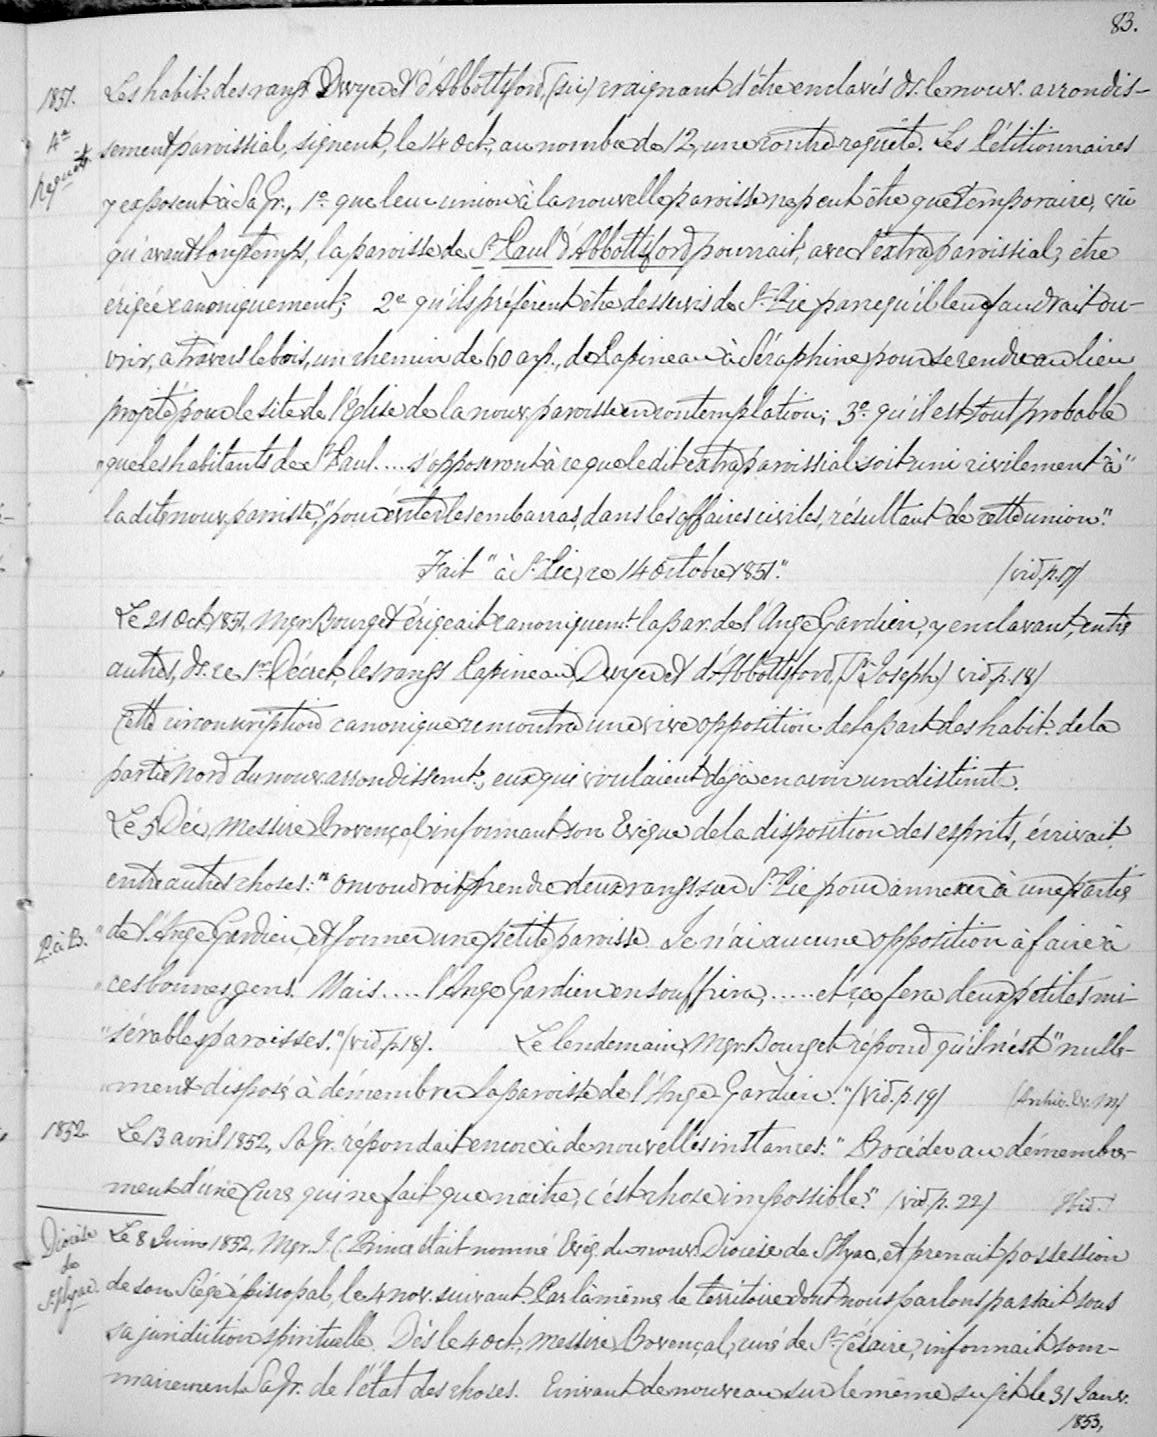 83.
1851. Les habit. des rangs Dwyer et d'Abbottsford, (sic) craignant d'être enclavés ds. le nouv. arrondis-
4e sement paroissial, signent, le 14 Oct., au nombre de 12, une contre requête. Les Pétitionnaires
Requête y exposent à Sa Gr., 1o que leur union à la nouvelle paroisse ne peut être que temporaire, vû
qu'avant longtemps, la paroisse de St Paul d'Abbottsford pourrait, avec l'extra paroissial, être
érigée canoniquement; 2o qu'ils préfèrent être desservis de St Pie parcequ'il leur faudrait ou-
vrir, à travers le bois, un chemin de 60 arp., de Papineau à Séraphine pour se rendre au lieu
projeté pour le site de l'Eglise de la nouv. paroisse en contemplation; 3o qu'il est tout probable
"que les habitants de St Paul.... s'opposeront à ce que le dit extra paroissial soit uni civilement à"
la dite nouv. paroisse," pour éviter les embarras, dans les affaires civiles, résultant de cette union."
Fait "à St Pie, ce 14 Octobre 1851." /vid. p. 17/
Le 21 Oct. 1851, Mgr. Bourget érigeait canoniquemt. la par. de l'Ange Gardien, y enclavant, entre
autres, ds. ce 1er Décret, les rangs Papineau, Dwyer et d'Abbottsford, (St Joseph) vid. p. 18/
Cette circonscription canonique rencontra une vive opposition de la part des habit. de la
partie Nord du nouv. arrondissemt., eux qui voulaient déjà en avoir un distinct.
Le 5 Déc., Messire Provençal informant son Evêque de la disposition des esprits, écrivait,
entre autres choses: "on voudroit prendre deux rangs sur St Pie pour annexer à une partie
P. à B. "de l'Ange Gardien, et former une petite paroisse. Je n'ai aucune opposition à faire à
"ces bonnes gens. Mais.... l'Ange Gardien en souffrira,...... et ça fera deux petites mi-
"sérables paroisses." (vid. p. 18/. Le lendemain, Mgr. Bourget répond qu'il n'est "nulle-
"ment disposé à démembrer la paroisse de l'Ange Gardien." /vid. p. 19/ (Archiv. Ev. M/
1852. Le 13 avril 1852, Sa Gr. répondait encore à de nouvelles instances: "Procéder au démembre-
ment d'une Cure qui ne fait que naître, c'est chose impossible." /vid. p. 22/ Ibid./
Diocèse de St Hyac. Le 8 Juin 1852, Mgr. J. C. Prince était nommé Evêq. du nouv. Diocèse de St Hyac., et prenait possession
de son Siége épiscopal, le 4 nov. suivant. Par là même le territoire dont nous parlons passait sous
sa juridiction spirituelle. Dès le 4 Oct., Messire Provençal, curé de St Césaire, informait som-
mairement Sa Gr. de l'état des choses. Ecrivant de nouveau sur le même sujet le 31 Janv.
1853,